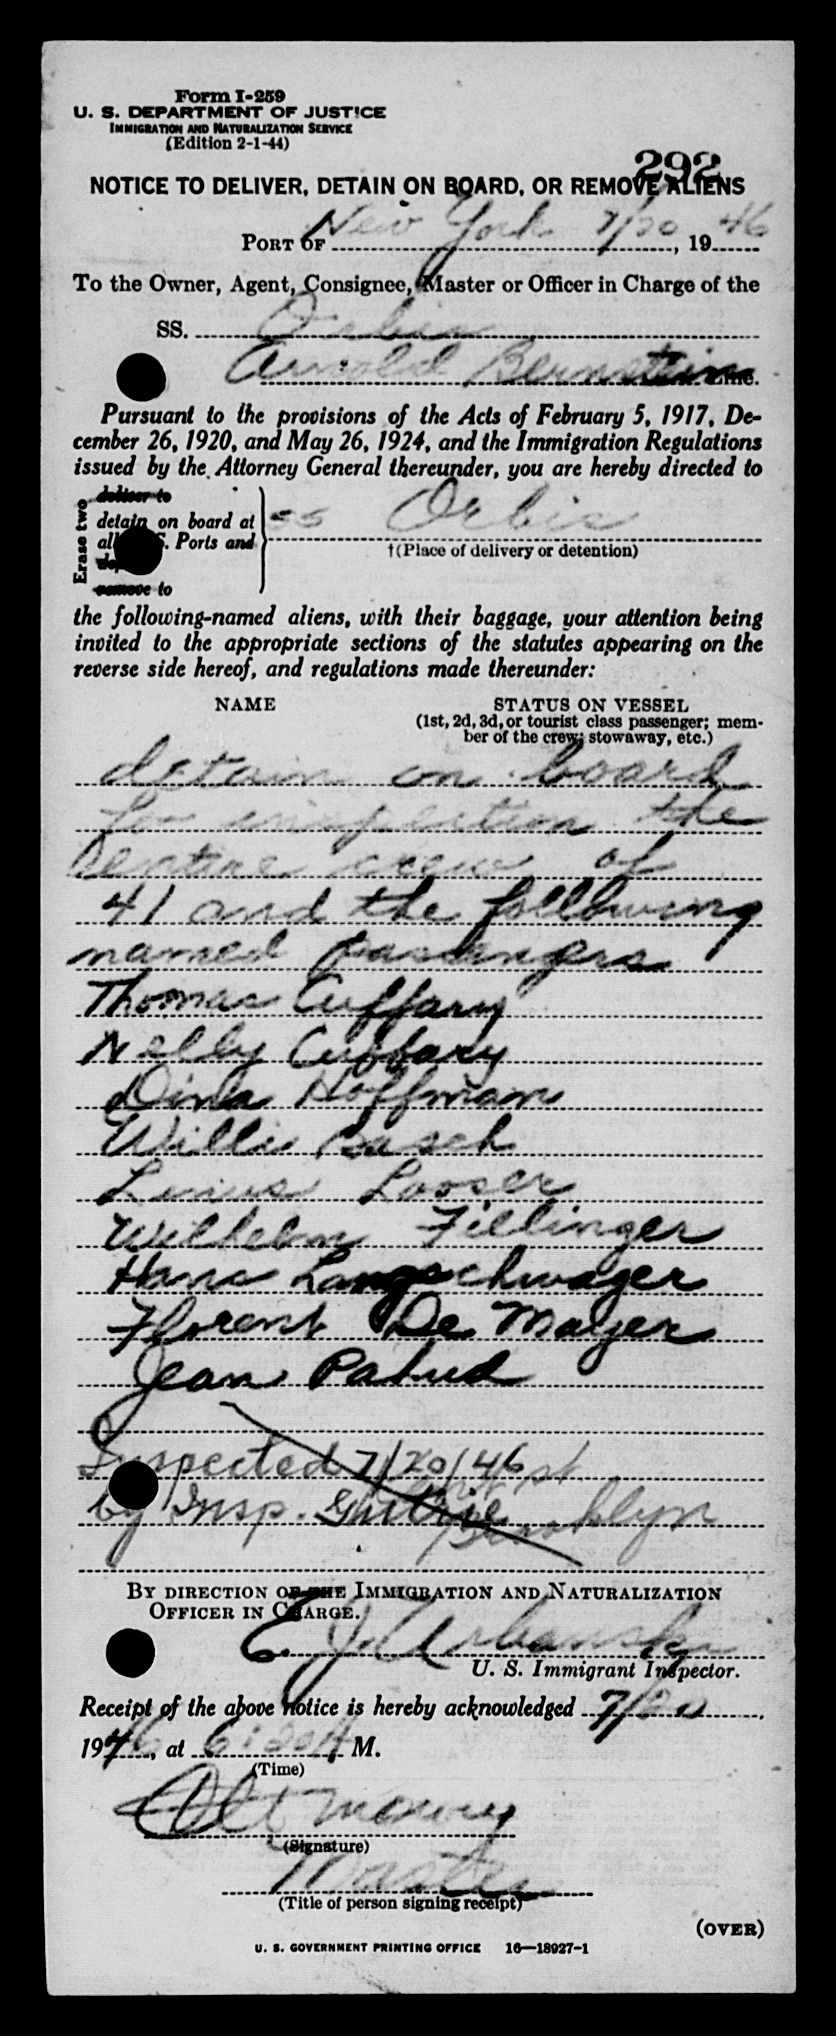 Form I-259
U. S. DEPARTMENT OF JUSTICE
IMMIGRATION AND NATURALIZATION SERVICE
(Edition 2-1-44)
292
NOTICE TO DELIVER, DETAIN ON BOARD, OR REMOVE ALIENS
PORT OF New York 7/20, 1946
To the Owner, Agent, Consignee, Master or Officer in Charge of the
SS. Orbis
Arnold Bernstein Line.
Pursuant to the provisions of the Acts of February 5, 1917, De-
cember 26, 1920, and May 26, 1924, and the Immigration Regulations
issued by the Attorney General thereunder, you are hereby directed to
Erase two
deliver to
detain on board at SS Orbis
all S. Ports and
†(Place of delivery or detention)
remove to
the following-named aliens, with their baggage, your attention being
invited to the appropriate sections of the statutes appearing on the
reverse side hereof, and regulations made thereunder:
NAME STATUS ON VESSEL
(1st, 2d, 3d, or tourist class passenger; mem-
ber of the crew; stowaway, etc.)
detain on board
for inspection the
entire crew of
41 and the following
named passengers
Thomas Cuffary
Nelly Cuffary
Dina Hoffman
Willi Basch
Linus Looser
Wilhelm Fillinger
Hans Langschwager
Florent De Mayer
Jean Pahud
Inspected 7/20/46 st
by Insp. Guthrie Brooklyn
BY DIRECTION OF THE IMMIGRATION AND NATURALIZATION
OFFICER IN CHARGE.
E. J. Urbanski
U. S. Immigrant Inspector.
Receipt of the above notice is hereby acknowledged 7/20,
1946, at 6:30 A M.
(Time)
(Signature)
Master
(Title of person signing receipt)
(OVER)
U. S. GOVERNMENT PRINTING OFFICE 16—18927-1